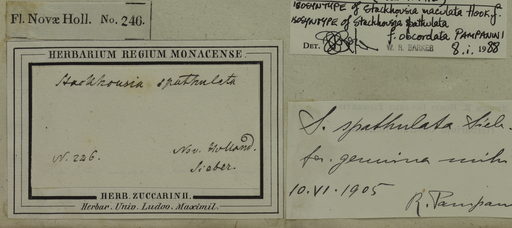 Fl. Novæ Holl. No. 246.
HERBARIUM REGIUM MONACENSE
Stackhousia spathulata
N. 246.
Nov. Holland.
Sieber.
HERB. ZUCCARINII.
Herbar. Univ. Ludov. Maximil.
ISOSYNTYPE of Stackhousia maculata Hook.f.
ISOSYNTYPE of Stackhousia spathulata
f. obcordata PAMPANINI
DET. W. R. BARKER 8.i. 1988
S. spathulata Sieb.
fo. genuina mihi
10.VI.1905
R. Pampan